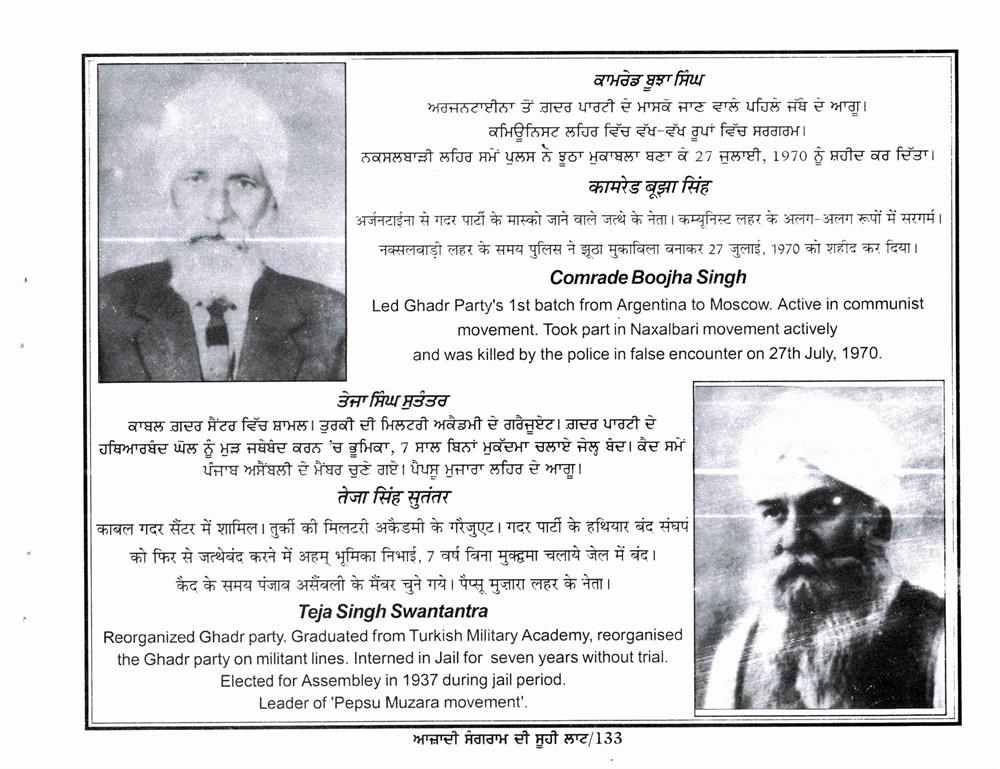 ਕਾਮਰੇਡ ਬੂਝਾ ਸਿੰਘ
ਅਰਜਨਟਾਈਨਾ ਤੋਂ ਗ਼ਦਰ ਪਾਰਟੀ ਦੇ ਮਾਸਕੋ ਜਾਣ ਵਾਲੇ ਪਹਿਲੇ ਜੱਥੇ ਦੇ ਆਗੂ।
ਕਮਿਊਨਿਸਟ ਲਹਿਰ ਵਿੱਚ ਵੱਖ-ਵੱਖ ਰੂਪਾਂ ਵਿੱਚ ਸਰਗਰਮ।
ਨਕਸਲਬਾੜੀ ਲਹਿਰ ਸਮੇਂ ਪੁਲਸ ਨੇ ਝੂਠਾ ਮੁਕਾਬਲਾ ਬਣਾ ਕੇ 27 ਜੁਲਾਈ, 1970 ਨੂੰ ਸ਼ਹੀਦ ਕਰ ਦਿੱਤਾ।
कामरेड बूझा सिंह
अर्जनटाईना से गदर पार्टी के मास्को जाने वाले जत्थे के नेता। कम्यूनिस्ट लहर के अलग-अलग रूपों में सरगर्म।
नक्सलवाड़ी लहर के समय पुलिस ने झूठा मुकाविला बनाकर 27 जुलाई, 1970 को शहीद कर दिया।
Comrade Boojha Singh
Led Ghadr Party's 1st batch from Argentina to Moscow. Active in communist
movement. Took part in Naxalbari movement actively
and was killed by the police in false encounter on 27th July, 1970.
ਤੇਜਾ ਸਿੰਘ ਸੁਤੰਤਰ
ਕਾਬਲ ਗ਼ਦਰ ਸੈਂਟਰ ਵਿੱਚ ਸ਼ਾਮਲ। ਤੁਰਕੀ ਦੀ ਮਿਲਟਰੀ ਅਕੈਡਮੀ ਦੇ ਗਰੈਜੂਏਟ। ਗ਼ਦਰ ਪਾਰਟੀ ਦੇ
ਹਥਿਆਰਬੰਦ ਘੋਲ ਨੂੰ ਮੁੜ ਜਥੇਬੰਦ ਕਰਨ 'ਚ ਭੂਮਿਕਾ, 7 ਸਾਲ ਬਿਨਾਂ ਮੁਕੱਦਮਾ ਚਲਾਏ ਜੇਲ੍ਹ ਬੰਦ। ਕੈਦ ਸਮੇਂ
ਪੰਜਾਬ ਅਸੈਂਬਲੀ ਦੇ ਮੈਂਬਰ ਚੁਣੇ ਗਏ। ਪੈਪਸੂ ਮੁਜਾਰਾ ਲਹਿਰ ਦੇ ਆਗੂ।
तेजा सिंह सुतंतर
काबल गदर सैंटर में शामिल। तुर्की की मिलटरी अकैडमी के गरैजुएट। गदर पार्टी के हथियार बंद संघर्ष
को फिर से जत्थेबंद करने में अहम् भूमिका निभाई, 7 वर्ष बिना मुक्द्दमा चलाये जेल में बंद।
कैद के समय पंजाब असैंबली के मैंबर चुने गये। पैप्सू मुज़ारा लहर के नेता।
Teja Singh Swantantra
Reorganized Ghadr party. Graduated from Turkish Military Academy, reorganised
the Ghadr party on militant lines. Interned in Jail for seven years without trial.
Elected for Assembley in 1937 during jail period.
Leader of 'Pepsu Muzara movement'.
ਆਜ਼ਾਦੀ ਸੰਗਰਾਮ ਦੀ ਸੂਹੀ ਲਾਟ/133